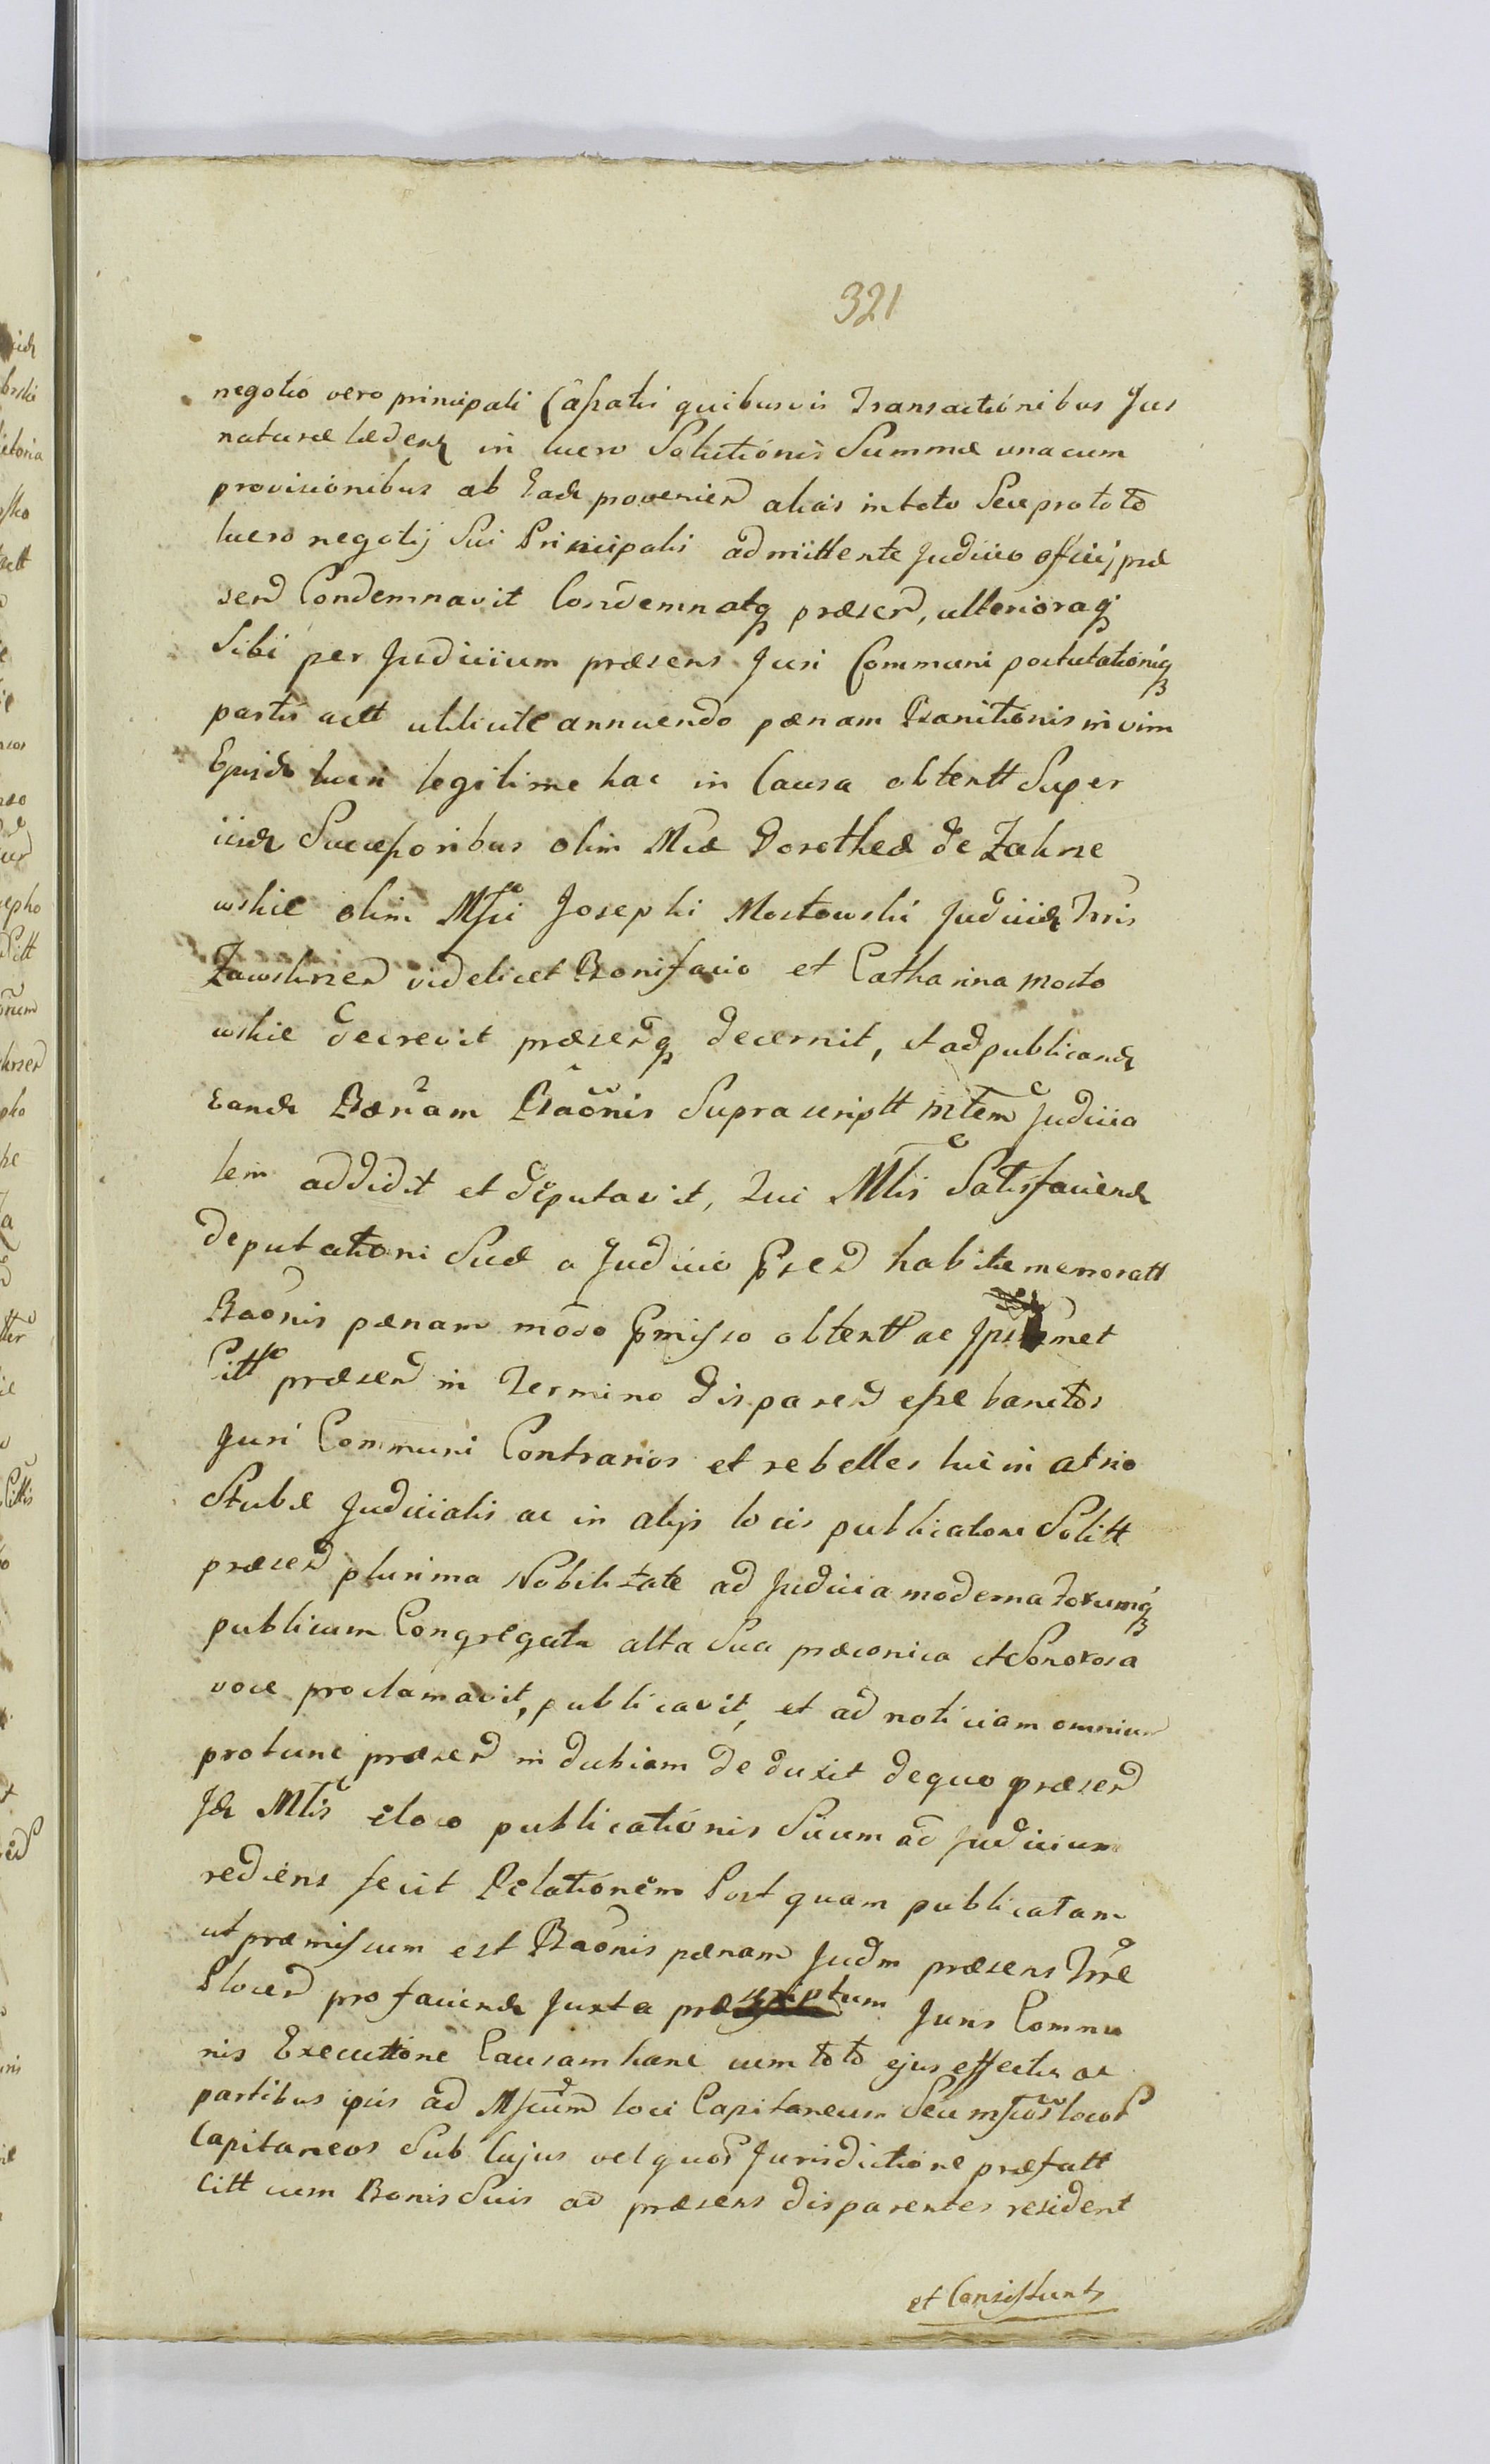 321
negotio vero principali Cassatis quibusvis Transactionibus Jus
naturæ lædend in lucro Solutionis Summæ una cum
provisionibus ab Eade provenien alias in toto Seu pro toto
lucro negotij Sui Principalis admittente Judicio officij præ
sen Condemnavit Condemnatq præsen, ulterioraq
Sibi per Judicium præsens Juri Communi postulationiq
partis actt ublicite annuendo pœnam Banitionis in vim
Ejusde lucri legitime hac in Causa obtentt Super
iisde Successoribus olim Mcæ Dorotheæ de Zakrze
wskie olim Mfci Josephi Mostowski Judicis Trris
Zawskrzen videlicet Bonifacio et Catharina Mosto
wskie decrevit præsenq decernit, et ad publicand
Eande Pœnam Bãonis Suprascriptt Mtem Judicia
lem addidit et deputavit, Qui Mtis Satisfaciend
deputationi Suæ a Judicio Præn habitæ memoratt
Baonis pœnam modo præmisso obtentt ac Ipsosmet
Citt præsen in Termino disparen esse banitos
Juri Communi Contrarios et rebelles hic in atrio
Stubæ Judicialis ac in alijs locis publicatoni Solitt
præsen plurima Nobilitate ad Judicia moderna Forumq
publicum Congregata alta Sua præconica et Sonorosa
voce proclamavit, publicavit, et ad noticiam omnium
protunc præsen indubiam deduxit de quo præsen
Jde Mtis e loco publicationis Suum ad Judicium
rediens fecit Relationem Post quam publicatam
ut præmissum est Baonis pœnam Judm præsens Trre
Plocen pro faciend Juxta præscriptum Juris Commu
nis Executione Causam hanc cum toto ejus effectu ac
partibus ipsis ad Mfcum loci Capitaneum Seu Mfcos locor
Capitaneos Sub Cujus vel quor Jurisdictione præfatt
Citt cum Bonis Suis ad præsens disparentes resident
et Consistunt,